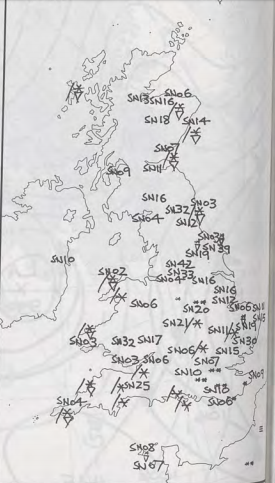 SN06
SN13 SN16
SN18 SN14
SN07
SN09 SN11
SN16 SN03
SN32
SN04 SN12
SN39
SN19
SN10
SN42
SN33
SN02 SN04 SN16
SN16
SN06 ** SN12
SN20 SN06
SN21 SN19
SN03 SN32 SN17 SN11 SN30
SN03 SN06 SN06 SN15
SN07
SN10 ** SN09
SN25 **
SN04 SN06
SN08
SN07 **